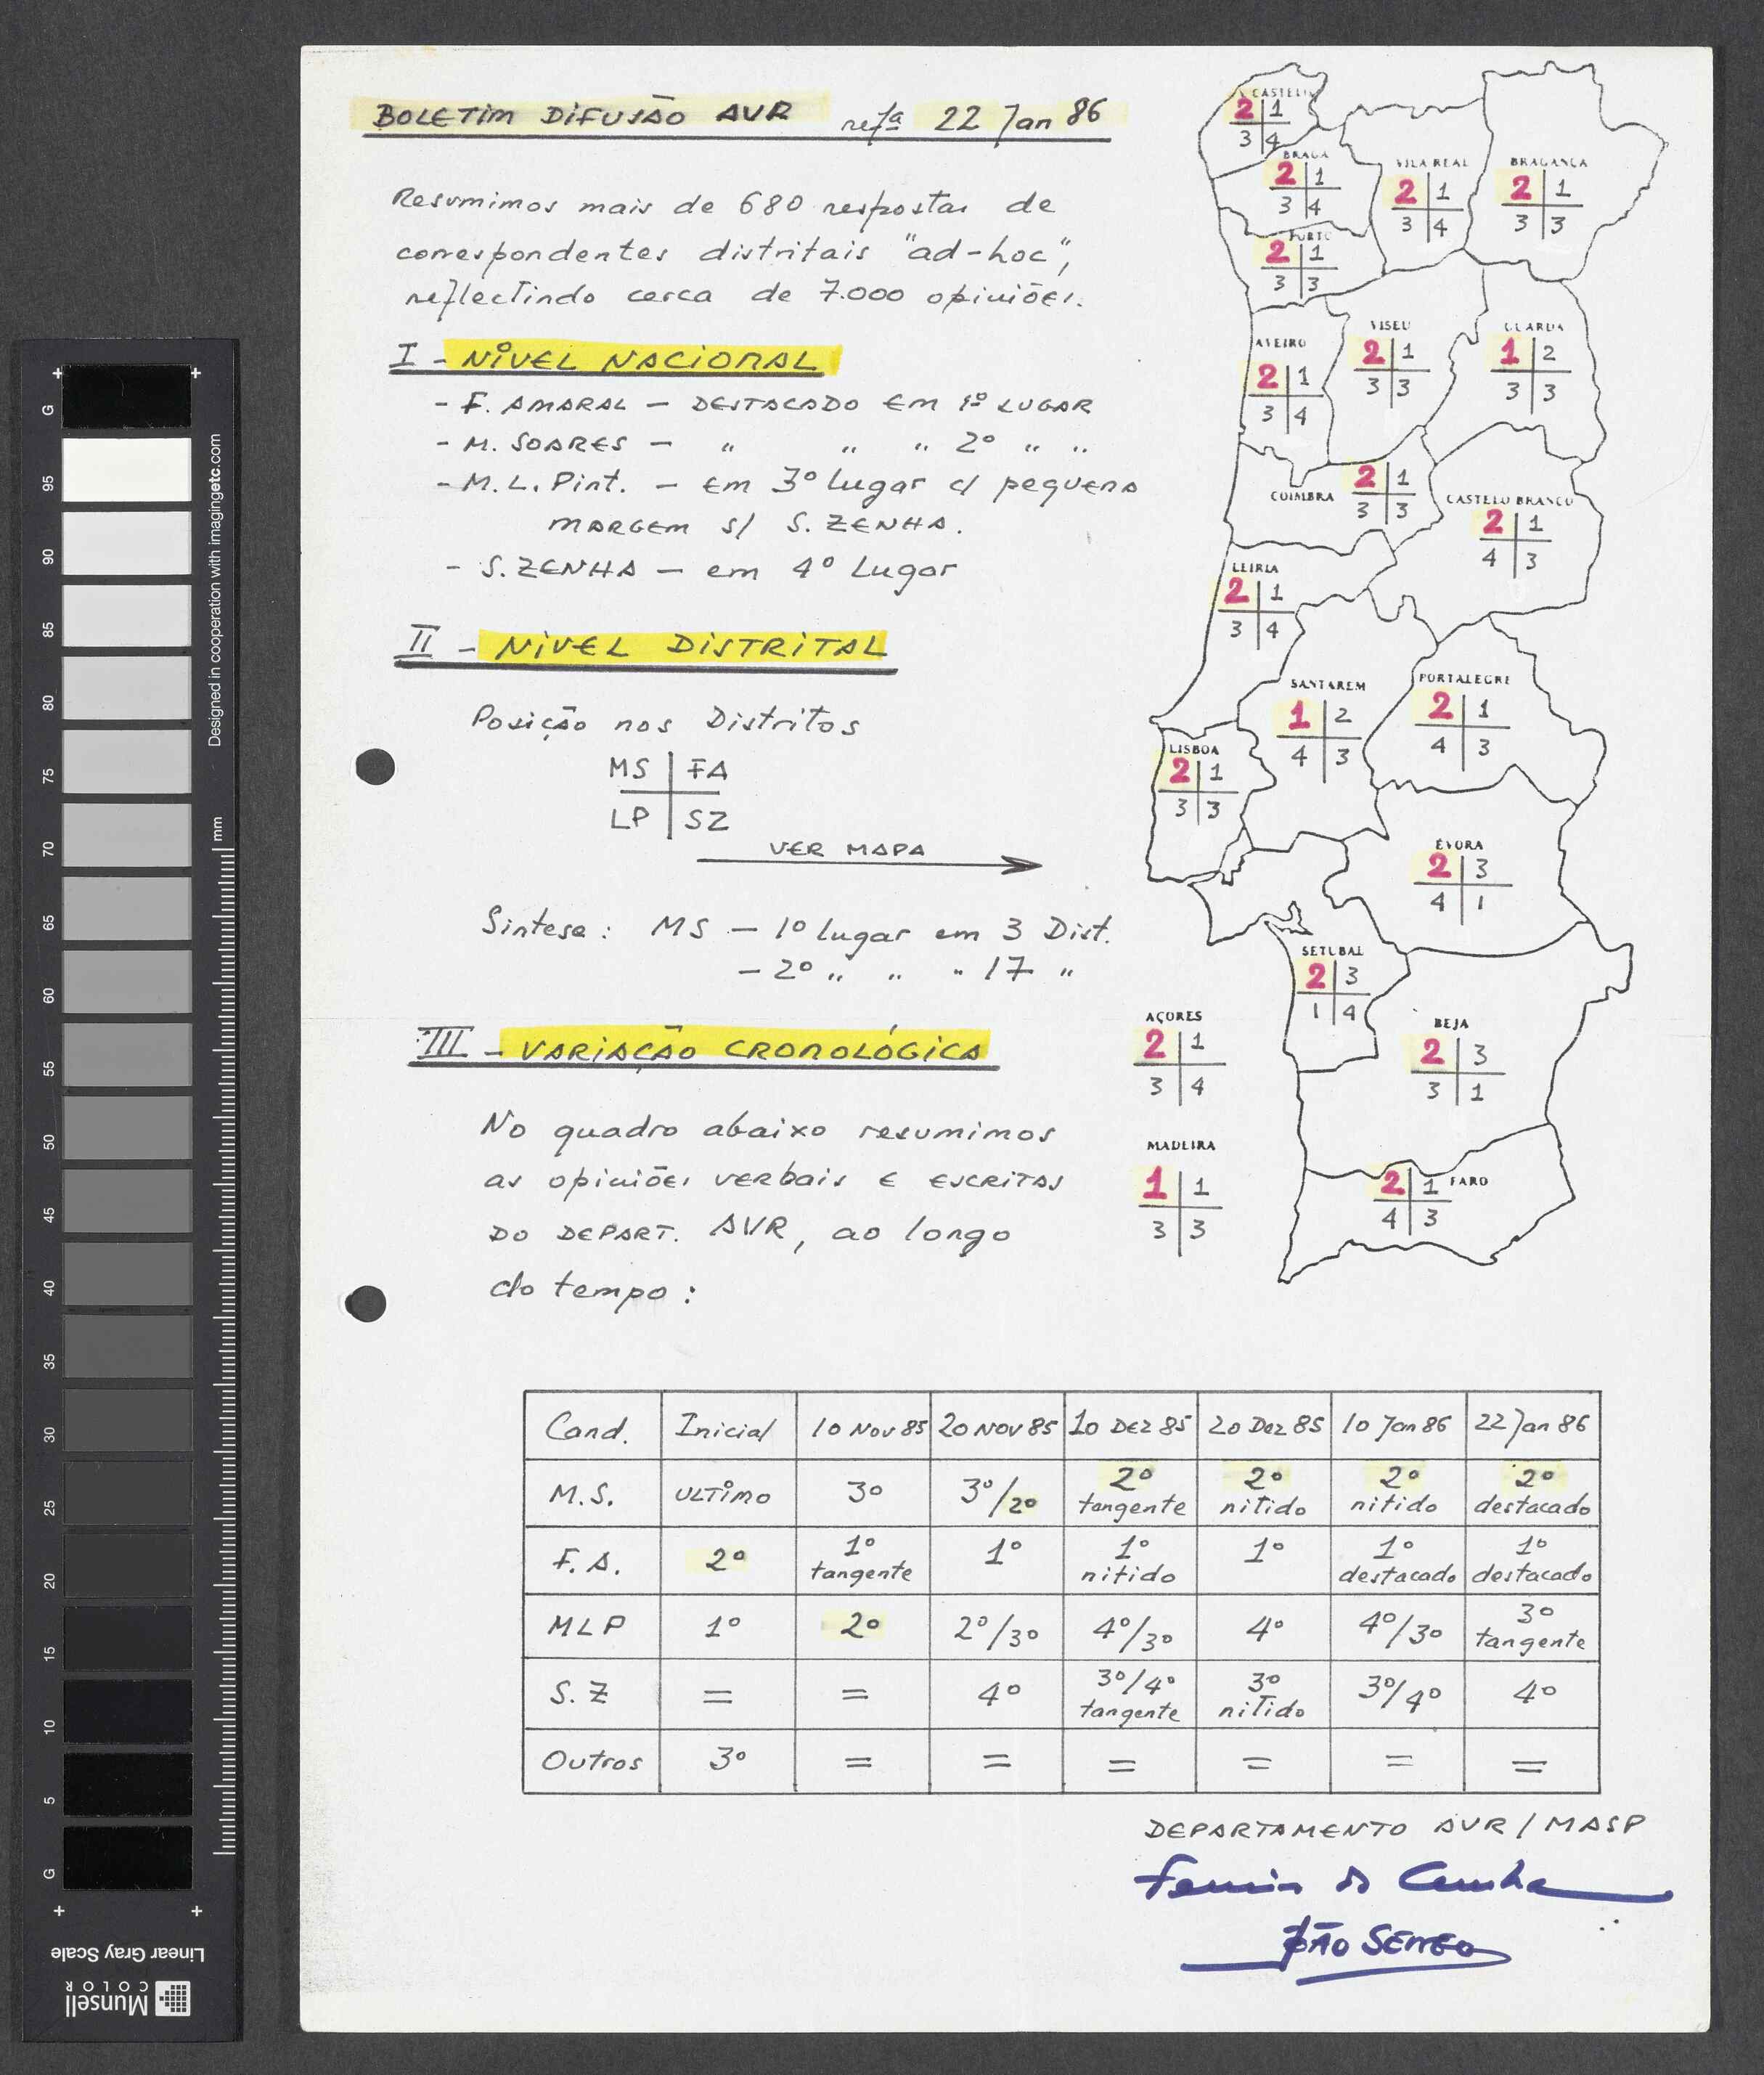 BOLETIM DIFUSÃO AVR refª 22 Jan 86
Resumimos mais de 680 respostas de
correspondentes distritais "ad-hoc",
reflectindo cerca de 7.000 opiniões.
I - NÍVEL NACIONAL
- F. AMARAL - DESTACADO EM 1º LUGAR
- M. SOARES - " " " 2º " "
- M.L. Pint. - em 3º lugar c/ pequena
MARGEM S/ S. ZENHA.
- S. ZENHA - em 4º Lugar
II - NÍVEL DISTRITAL
Posição nos Distritos
MS | FA
LP | SZ
VER MAPA
Sintese: MS - 1º lugar em 3 Dist.
- 2º " " " 17 "
III - VARIAÇÃO CRONOLÓGICA
No quadro abaixo resumimos
as opiniões verbais e escritas
DO DEPART. AVR, ao longo
do tempo:
V CASTELO
2 | 1
3 | 4
BRAGA
2 | 1
3 | 4
VILA REAL
2 | 1
3 | 4
BRAGANÇA
2 | 1
3 | 3
PORTO
2 | 1
3 | 3
AVEIRO
2 | 1
3 | 4
VISEU
2 | 1
3 | 3
GUARDA
1 | 2
3 | 3
COIMBRA
2 | 1
3 | 3
CASTELO BRANCO
2 | 1
4 | 3
LEIRIA
2 | 1
3 | 4
SANTAREM
1 | 2
4 | 3
PORTALEGRE
2 | 1
4 | 3
LISBOA
2 | 1
3 | 3
ÉVORA
2 | 3
4 | 1
SETUBAL
2 | 3
1 | 4
AÇORES
2 | 1
3 | 4
BEJA
2 | 3
3 | 1
MADEIRA
1 | 1
3 | 3
FARO
2 | 1
4 | 3
Cand. Inicial 10 NOV 85 20 NOV 85 10 DEZ 85 20 Dez 85 10 Jan 86 22 Jan 86
M.S. ULTIMO 3º 3º/2º 2º tangente 2º nitido 2º nitido 2º destacado
F.A. 2º 1º tangente 1º 1º nitido 1º 1º destacado 1º destacado
MLP 1º 2º 2º/3º 4º/3º 4º 4º/3º 3º tangente
S.Z = = 4º 3º/4º tangente 3º nitido 3º/4º 4º
Outros 3º = = = = = =
DEPARTAMENTO AVR / MASP
Cunha
JOÃO
G 95 90 85 80 75 70 65 60 55 50 45 40 35 30 25 20 15 10 5 G
mm
Designed in cooperation with imagingetc.com
Linear Gray Scale
Munsell
COLOR